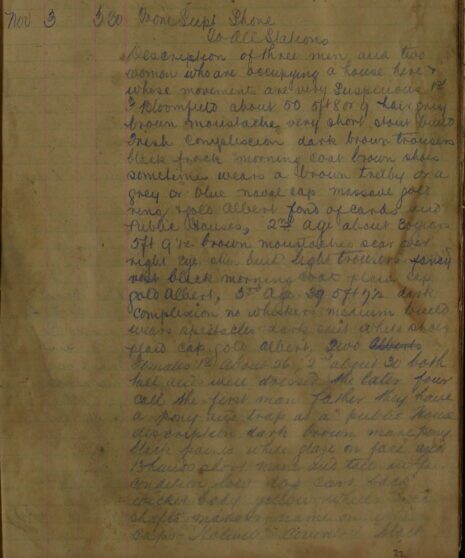 Nov 3 530 From Supt Phone
To All Stations
Description of three men and two
woman who are occupying a house here &
whose movements are very suspicious 1st
Bloomfield about 50 5ft 8 or 9 hair grey
brown moustache very short stout build
fresh complexion dark brown trousers
black frock morning coat brown shoes
sometimes wears a brown trilby or a
grey or blue naval cap massave gold
ring & gold Albert fond of cards and
Public Houses, 2nd age about 30 years
5ft 9 brown moustache scar over
right eye build light trousers fancy
vest black morning coat plaid cap
gold Albert, 3rd Age 39 5ft 7½ dark
complexion no whiskers medium build
wears spectacles dark suit white shoes
plaid cap gold Albert, Two Alberts
Females 1st about 26, 2nd about 30 both
tall and well dressed the later four
call the first man Father they have
a pony and trap at a public House
description dark brown mare pony
black points white blaze on face aged
13 hands short mane and tail in fair
condition dog cart
wicker body yellow wheels
shafts makers name on
caps
22